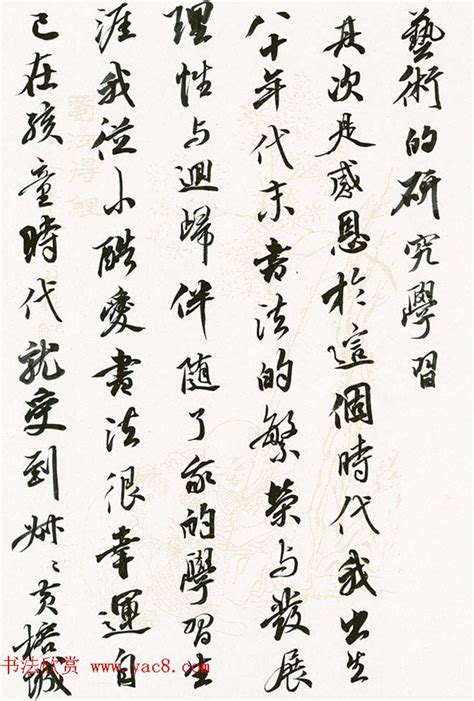 藝術的研究學習
其次是感恩於這個時代我出生
八十年代末書法的繁榮與發展
理性与迴歸伴随了我的學習生
涯我從小酷愛書法很幸運自
己在孩童時代就受到姊〻黄培誠
书法欣赏 www.yac8.com